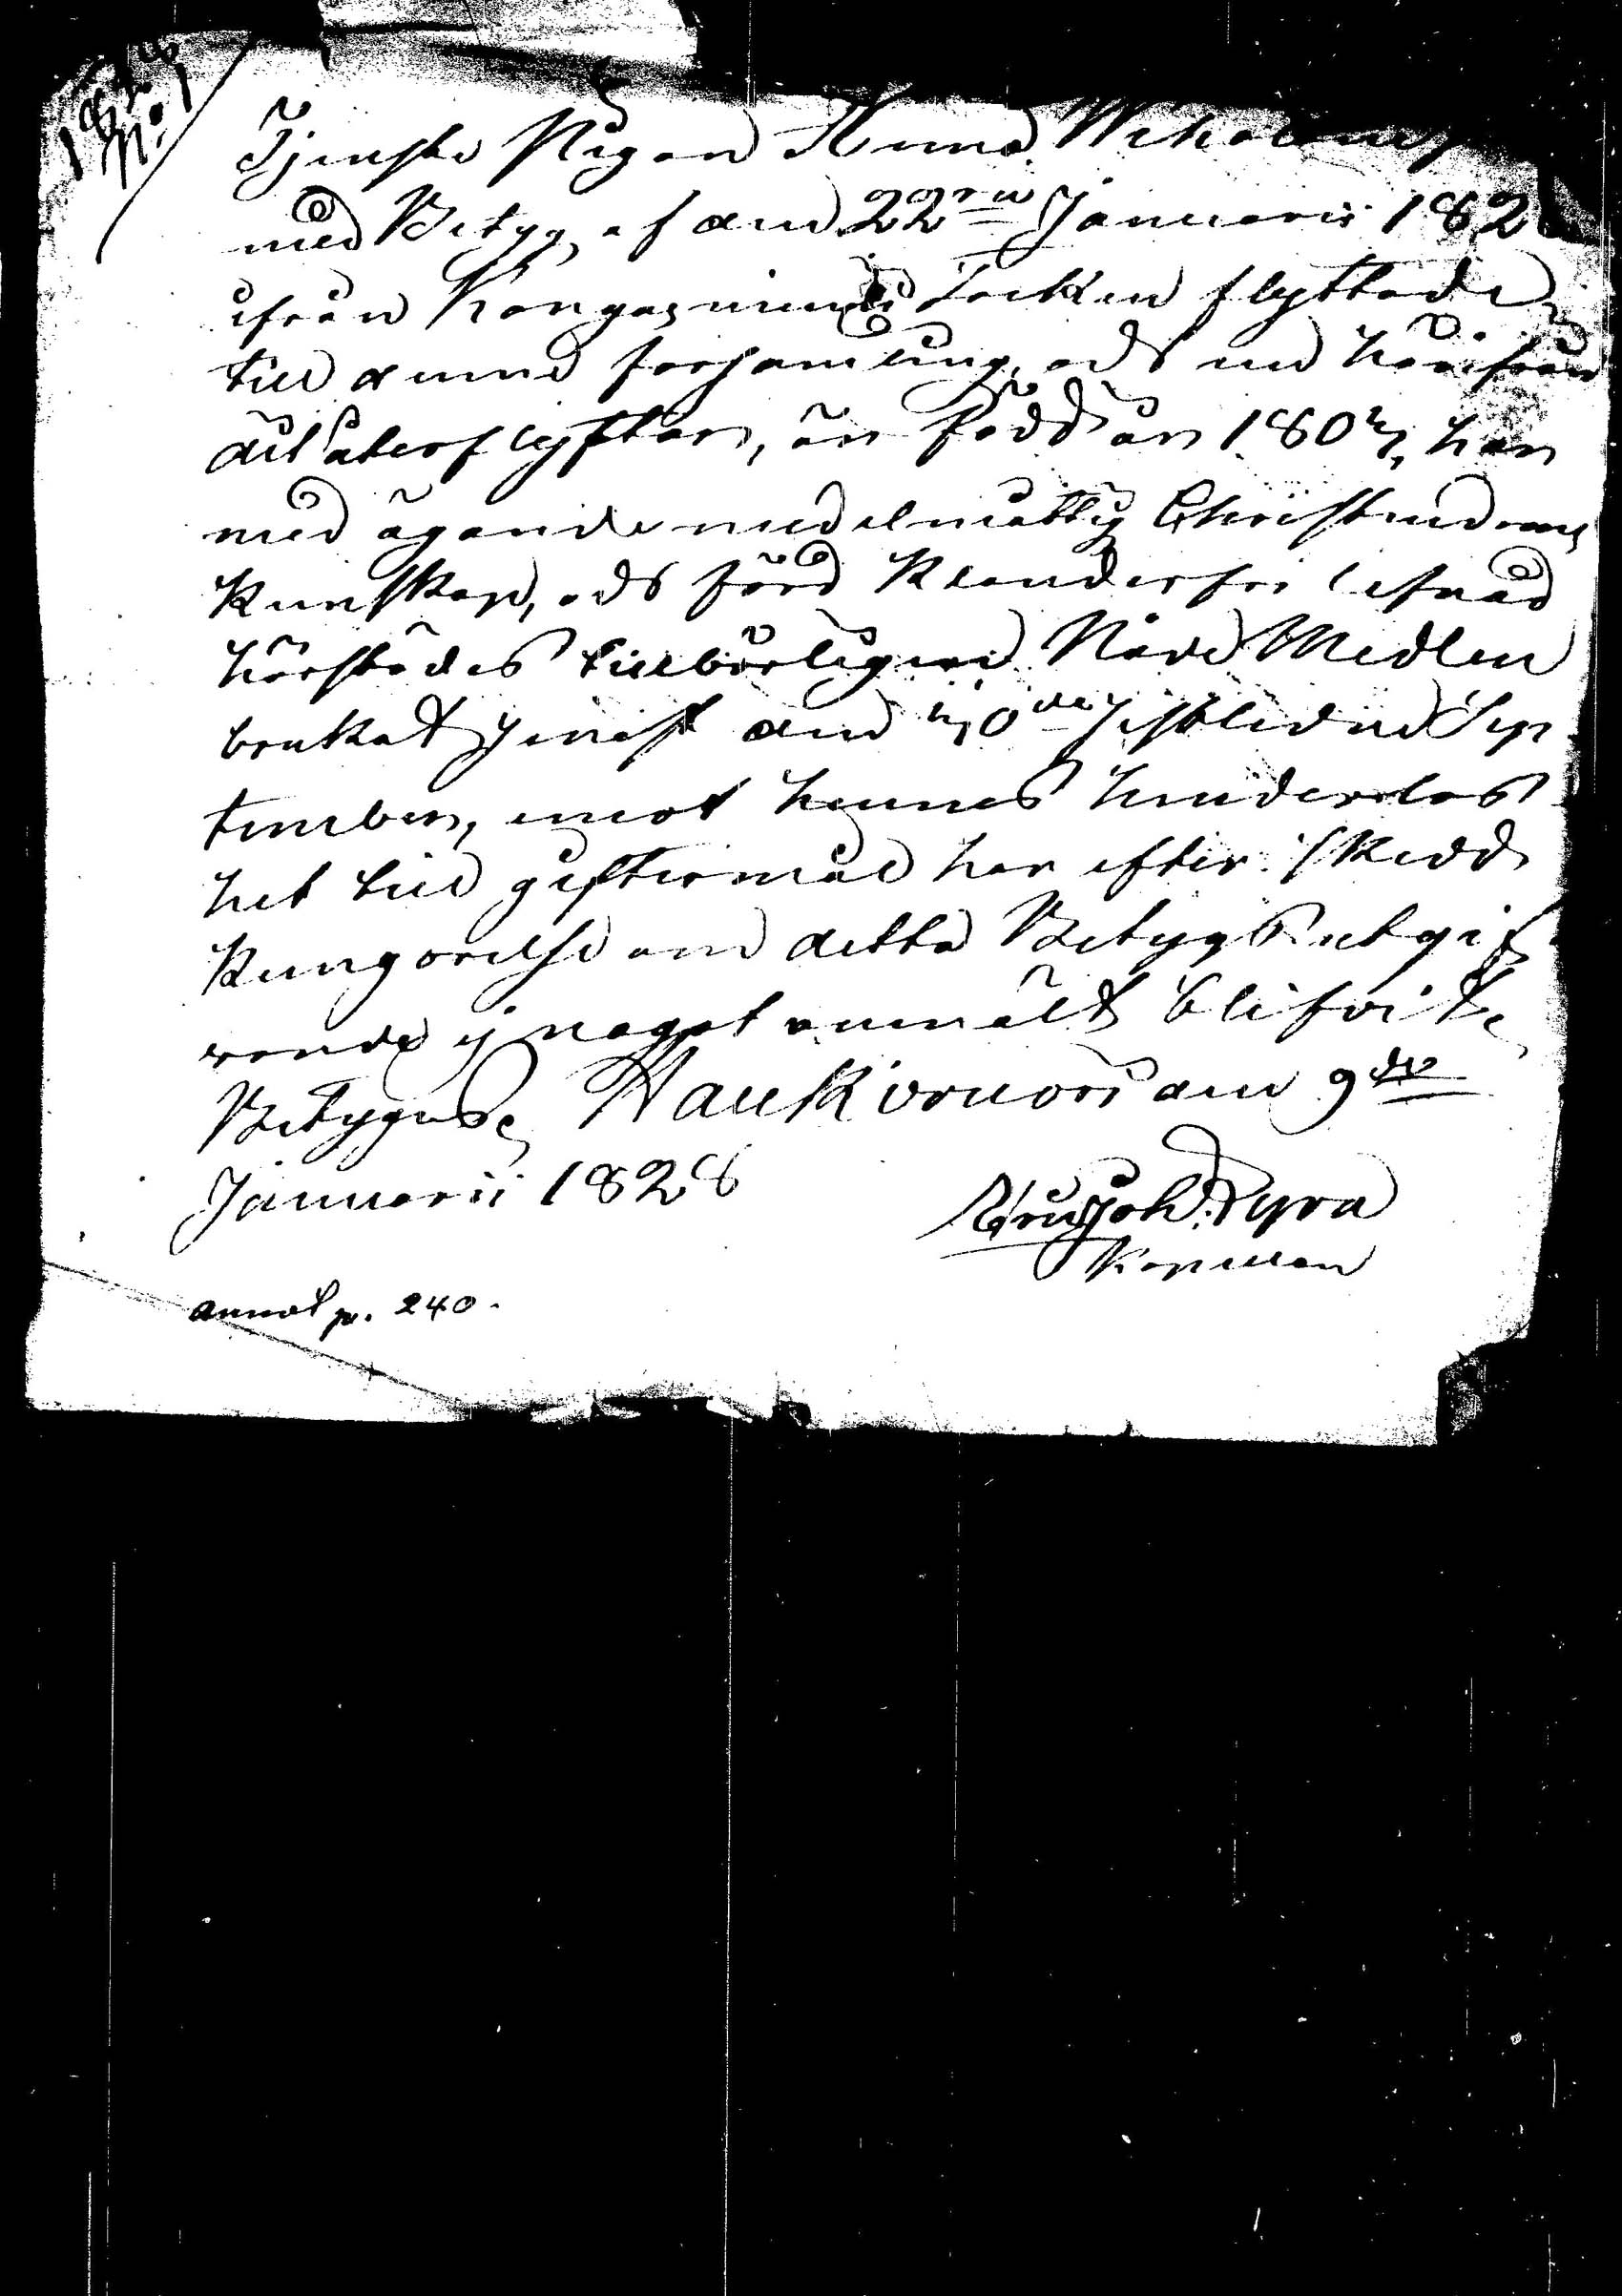 1828
N:o 1
Tjenste Pigan Anna
med Betyg af den 22dra Januarii 182
ifrån Kangasniemi Socken flyttade
till denna församling, och nu härifrån
dit återflyttar, är född år 1803, har
med ägande medelmåttig Christendoms
kunskap, och förd klanderfri lefnad
härstädes tillbörligen Nåde Medlen
brukat senast den 30de sistledne Sep
tember, emot hennes hinderlös
het till giftermål har efter skedd
kungörelse om detta Betygs utgif
vande ej något anmält blifvit.
Betygas. Haukivuori den 9de
Januarii 1828
Joh. Pyra
Kapellan
annot p. 240.